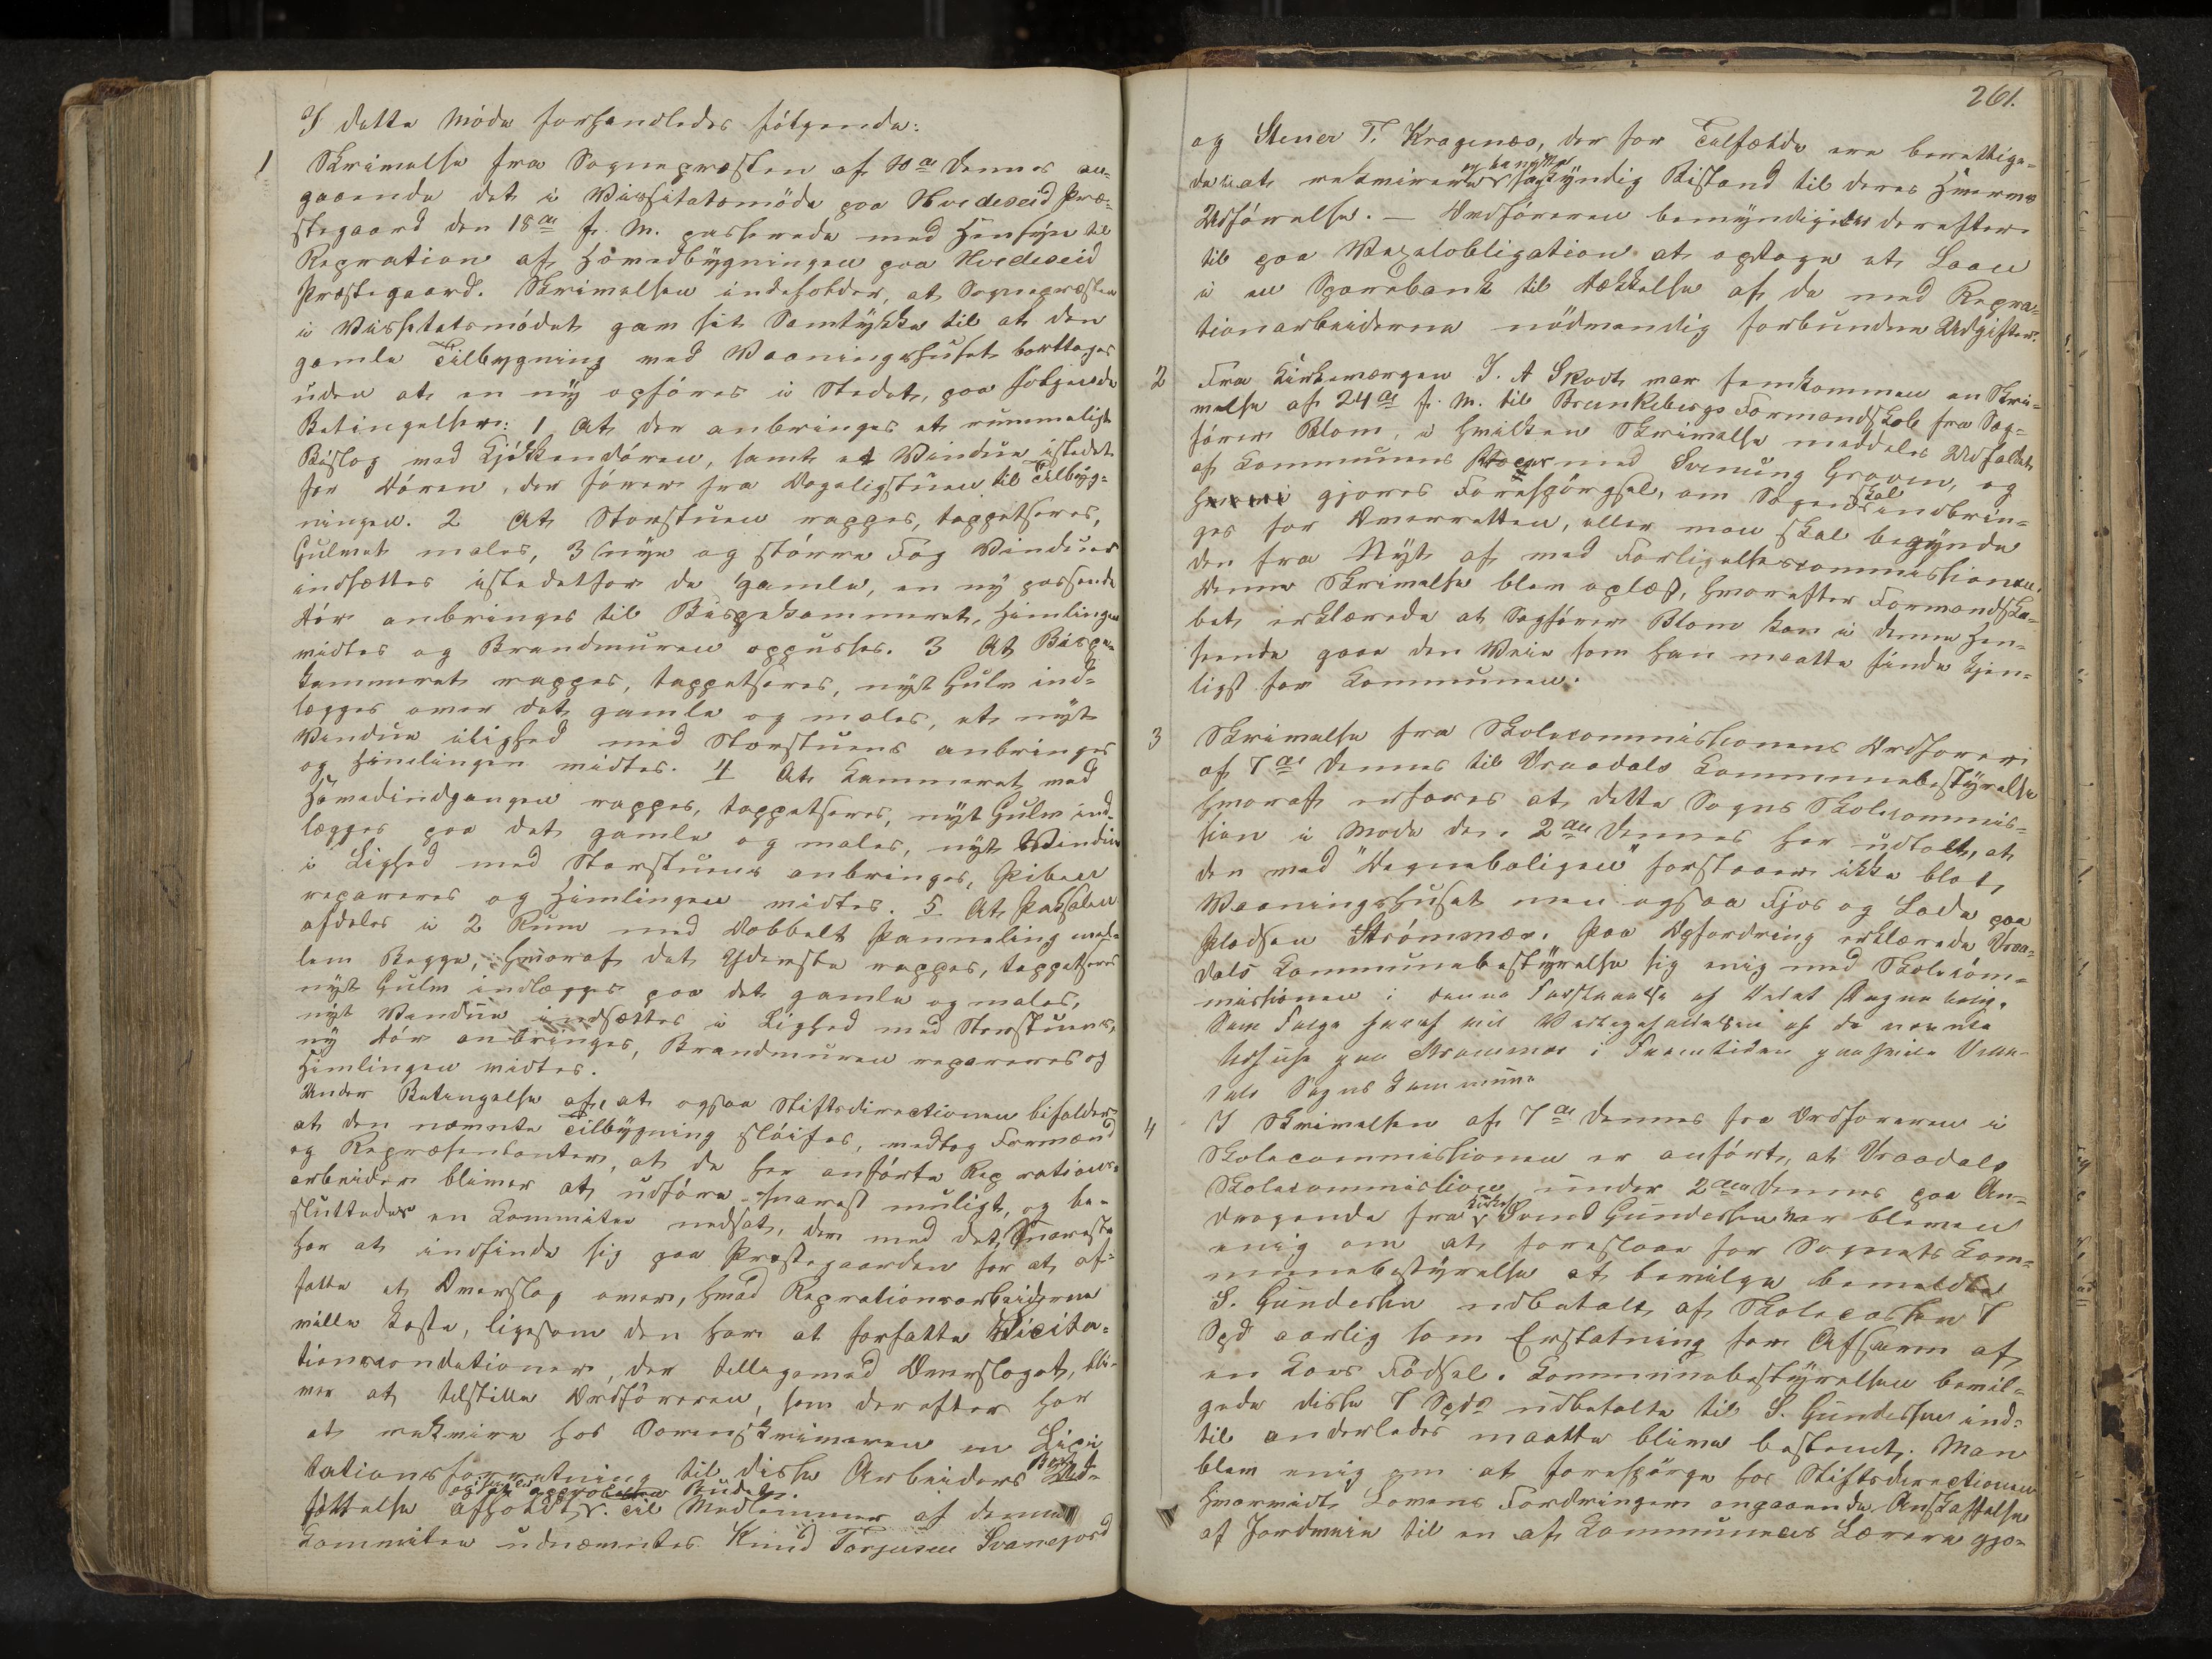 I dette Møde forhandledes følgende:
1 Skrivelse fra Sognepræsten af 10de dennes an-
gaaende det i Vissitatsmøde paa Hvideseid Præ-
stegaard den 18de f. M. passerede med Hensyn til
Repration af Hovedbygningen paa Hvideseid
Præstegaard. Skrivelsen indeholder, at Sognepræsten
i Vissitatsmødet gav sit Samtykke til at den
gamle Tilbygning ved Vaaningshuset borttages
uden at en ny opføres i Stedet, paa følgende
Betingelser: 1 At der anbringes et rummeligt
Bislag med Kjøkkendøren, samt et Vindue istedet
for Døren, der fører fra Dageligstuen til Tilbyg-
ningen. 2 At Storstuen rappes, tappetseres,
Gulvet males, 3 nye og større Fag Vinduer
indsættes istedetfor de gamle, en ny passende
Dør anbringes til Bispekammeret, Himlingen
hvidtes og Brandmuren oppusses. 3 At Bispe-
kammeret rappes, tappetseres, nyt Gulv ind-
lægges over det gamle og males, et nyt
Vindue ilighed med Storstuens anbringes
og Himlingen hvidtes. 4 At Kammeret ved
Hovedindgangen rappes, tappetseres, nyt Gulv ind-
lægges paa det gamle og males, nyt Vindue
i Lighed med Storstuens anbringes, Piben
repareres og Himlingen hvidtes. 5 At
afdeles i 2 Rum med Dobbelt Panneling mel-
lem Begge, hvoraf det Yderste rappes, tappetseres
nyt Gulv indlægges paa det gamle og males,
nyt Vindue indsættes i Lighed med Storstuens,
ny Dør anbringes, Brandmuren repareres og
Himlingen hvidtes.
Under Betingelse af, at ogsaa Stiftsdirectionen bifalder
at den nævnte Tilbygning sløifes, vedtog Formænd
og Repræsentanter, at de her anførte Reprations-
arbeider bliver at udføre snarest muligt, og be-
sluttedes en Kommitee nedsat, der med det Snareste
har at indfinde sig paa Præstegaarden for at af-
fatte et Overslag over, hvad Reprationsarbeiderne
ville koste, ligesom den har at forfatte Licita-
tionscondationer, der tilligemed Overslaget, bli-
ver at tilstille Ordføreren, som derefter har
at rekvirere hos Sorenskriveren en Lici
tationsforretning til disse Arbeiders Bort
sættelse afholdt. Til Medlemmer af denne
Kommitee udnævntes Knud Torjusen Svanejord
261.
og Stener T. Kragenæs, der for Tilfælde ere berettige-
de til at rekvirere sagkyndig Bistand til deres Hvervs
Udførelse. — Ordføreren bemyndigedes derefter
til paa Vexelobligation at optage et Laan
i en Sparebank til Dækkelse af de med Repra-
tionarbeiderne nødvendig forbundne Udgifter.
2 Fra Kirkeværgen J. A Skodt var fremkommen en Skri-
velse af 24de f. M. til Brunkebergs Formandskab fra Sag-
fører Blom, i hvilken Skrivelse meddeles Udfaldet
af Kommunens Proces med Svenung Graven, og
gjøres Forespørgsel, om Sagen skal indbrin-
ges for Overretten, eller man skal begynde
den fra Nyt af med Forligelsescommissionen.
Denne Skrivelse blev oplæst, hvorefter Formandska-
bet erklærede at Sagfører Blom kan i denne Hen-
seende gaae den Veie som han maatte finde tjen-
ligst for Kommunen.
3 Skrivelse fra Skolecommissionens Ordfører
af 7de dennes til Vraadals Kommunebestyrelse
hvoraf erfares at dette Sogns Skolecommis-
sion i Møde den 2den dennes har udtalt, at
den med "Degneboligen" forstaaer ikke blot
Vaaningshuset men ogsaa Fjøs og Lade paa
Pladsen Strømmer. Paa Opfordring erklærede Vraa-
dals Kommunebestyrelse sig enig med Skolecom-
missionen i denne Forstaaelse af Ordet Degnebolig.
Som Følge heraf vil Vedligeholdelsen af de nævnte
Udhuse paa Strømmer i Fremtiden paahvile Vraa-
dals Sogns Kommune
4 I Skrivelsen af 7de dennes fra Ordføreren i
Skolecommissionen er anført, at Vraadals
Skolecommission under 2den dennes paa An-
dragende fra Kirkes. Svend Gundersen var bleven
enig om at foreslaae for Sognets Kom-
munebestyrelse at bevilge bemeldte
S. Gundersen udbetalt af Skolecassen 7
Spd aarlig som Erstatning for Afsavn af
en Koes Fødsel. Kommunebestyrelsen bevil-
gede disse 7 Spd udbetalte til S. Gundersen ind-
til anderledes maatte blive bestemt. Man
blev enig om at forespørge hos Stiftsdirectionen
hvorvidt Lovens Fordringer angaaende Anskaffelse
af Jordveie til en af Kommunens Lærere gjø-